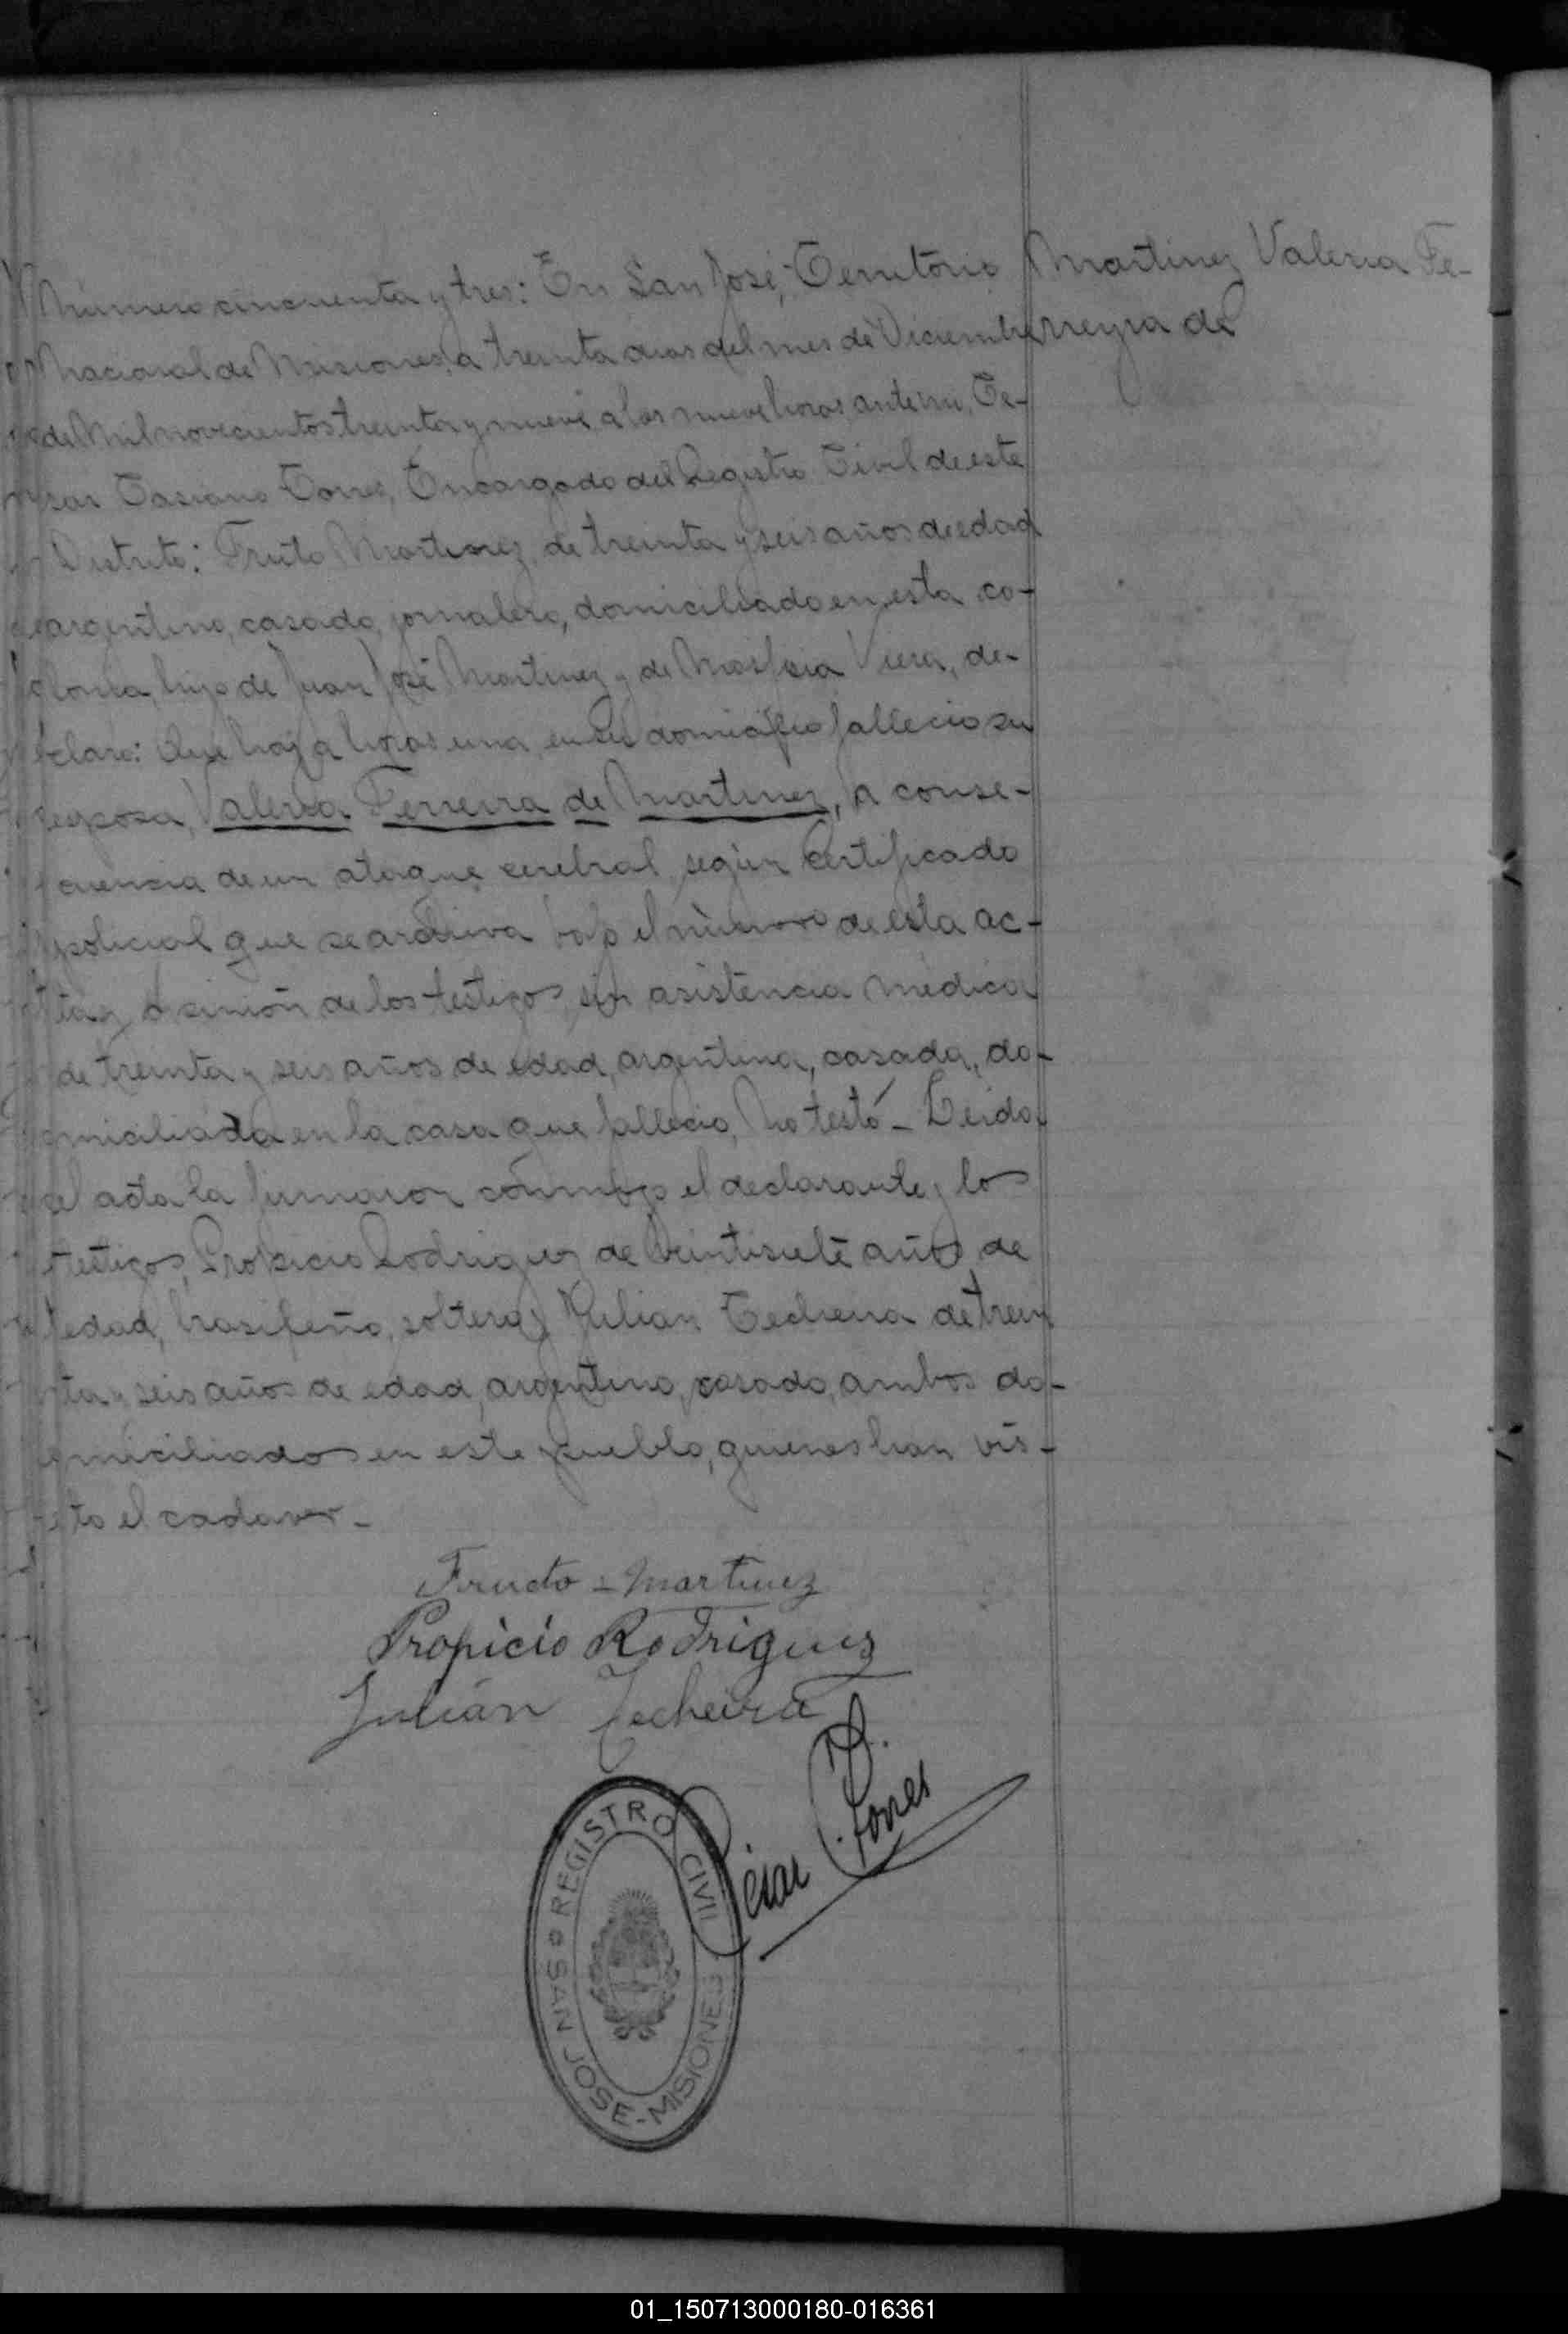 Número cincuenta y tres: En San José, Territorio
Nacional de Misiones, a treinta dias del mes de Diciembre
de Mil novecientos treinta y nueve, a las nueve horas, ante mi, Ce-
sar Casiano Torres, Encargado del Registro Civil de este
Distrito: Fruto Martinez, de treinta y seis años de edad
argentino, casado, jornalero, domiciliado en esta co-
lonia, hijo de Juan José Martinez y de Viera, de-
claro: Que hoy a horas una, en su domicilio fallecio su
esposa, Valeria Ferreira de Martinez, a conse-
cuencia de un ataque cerebral, según certificado
policial que se archiva bajo el número de esta ac-
ta y opinión de los testigos, sin asistencia médica
de treinta y seis años de edad, argentina, casada, do-
miciliada en la casa que fallecio, No testó_ Leida
el acta la firmaron conmigo el declarante y los
testigos, Propicio Rodriguez de veintisiete años de
edad, brasileño, soltero y Julian Techeira de trein
ta y seis años de edad, argentino, casado, ambos do-
miciliados en este pueblo, quienes han vis-
to el cadaver_
Martinez Valeria Fe-
rreyra de
Fructo - Martinez
Propicio Rodriguez
Julián Techeira
Cesar C. Torres
REGISTRO CIVIL
SAN JOSE - MISIONES
01_150713000180-016361